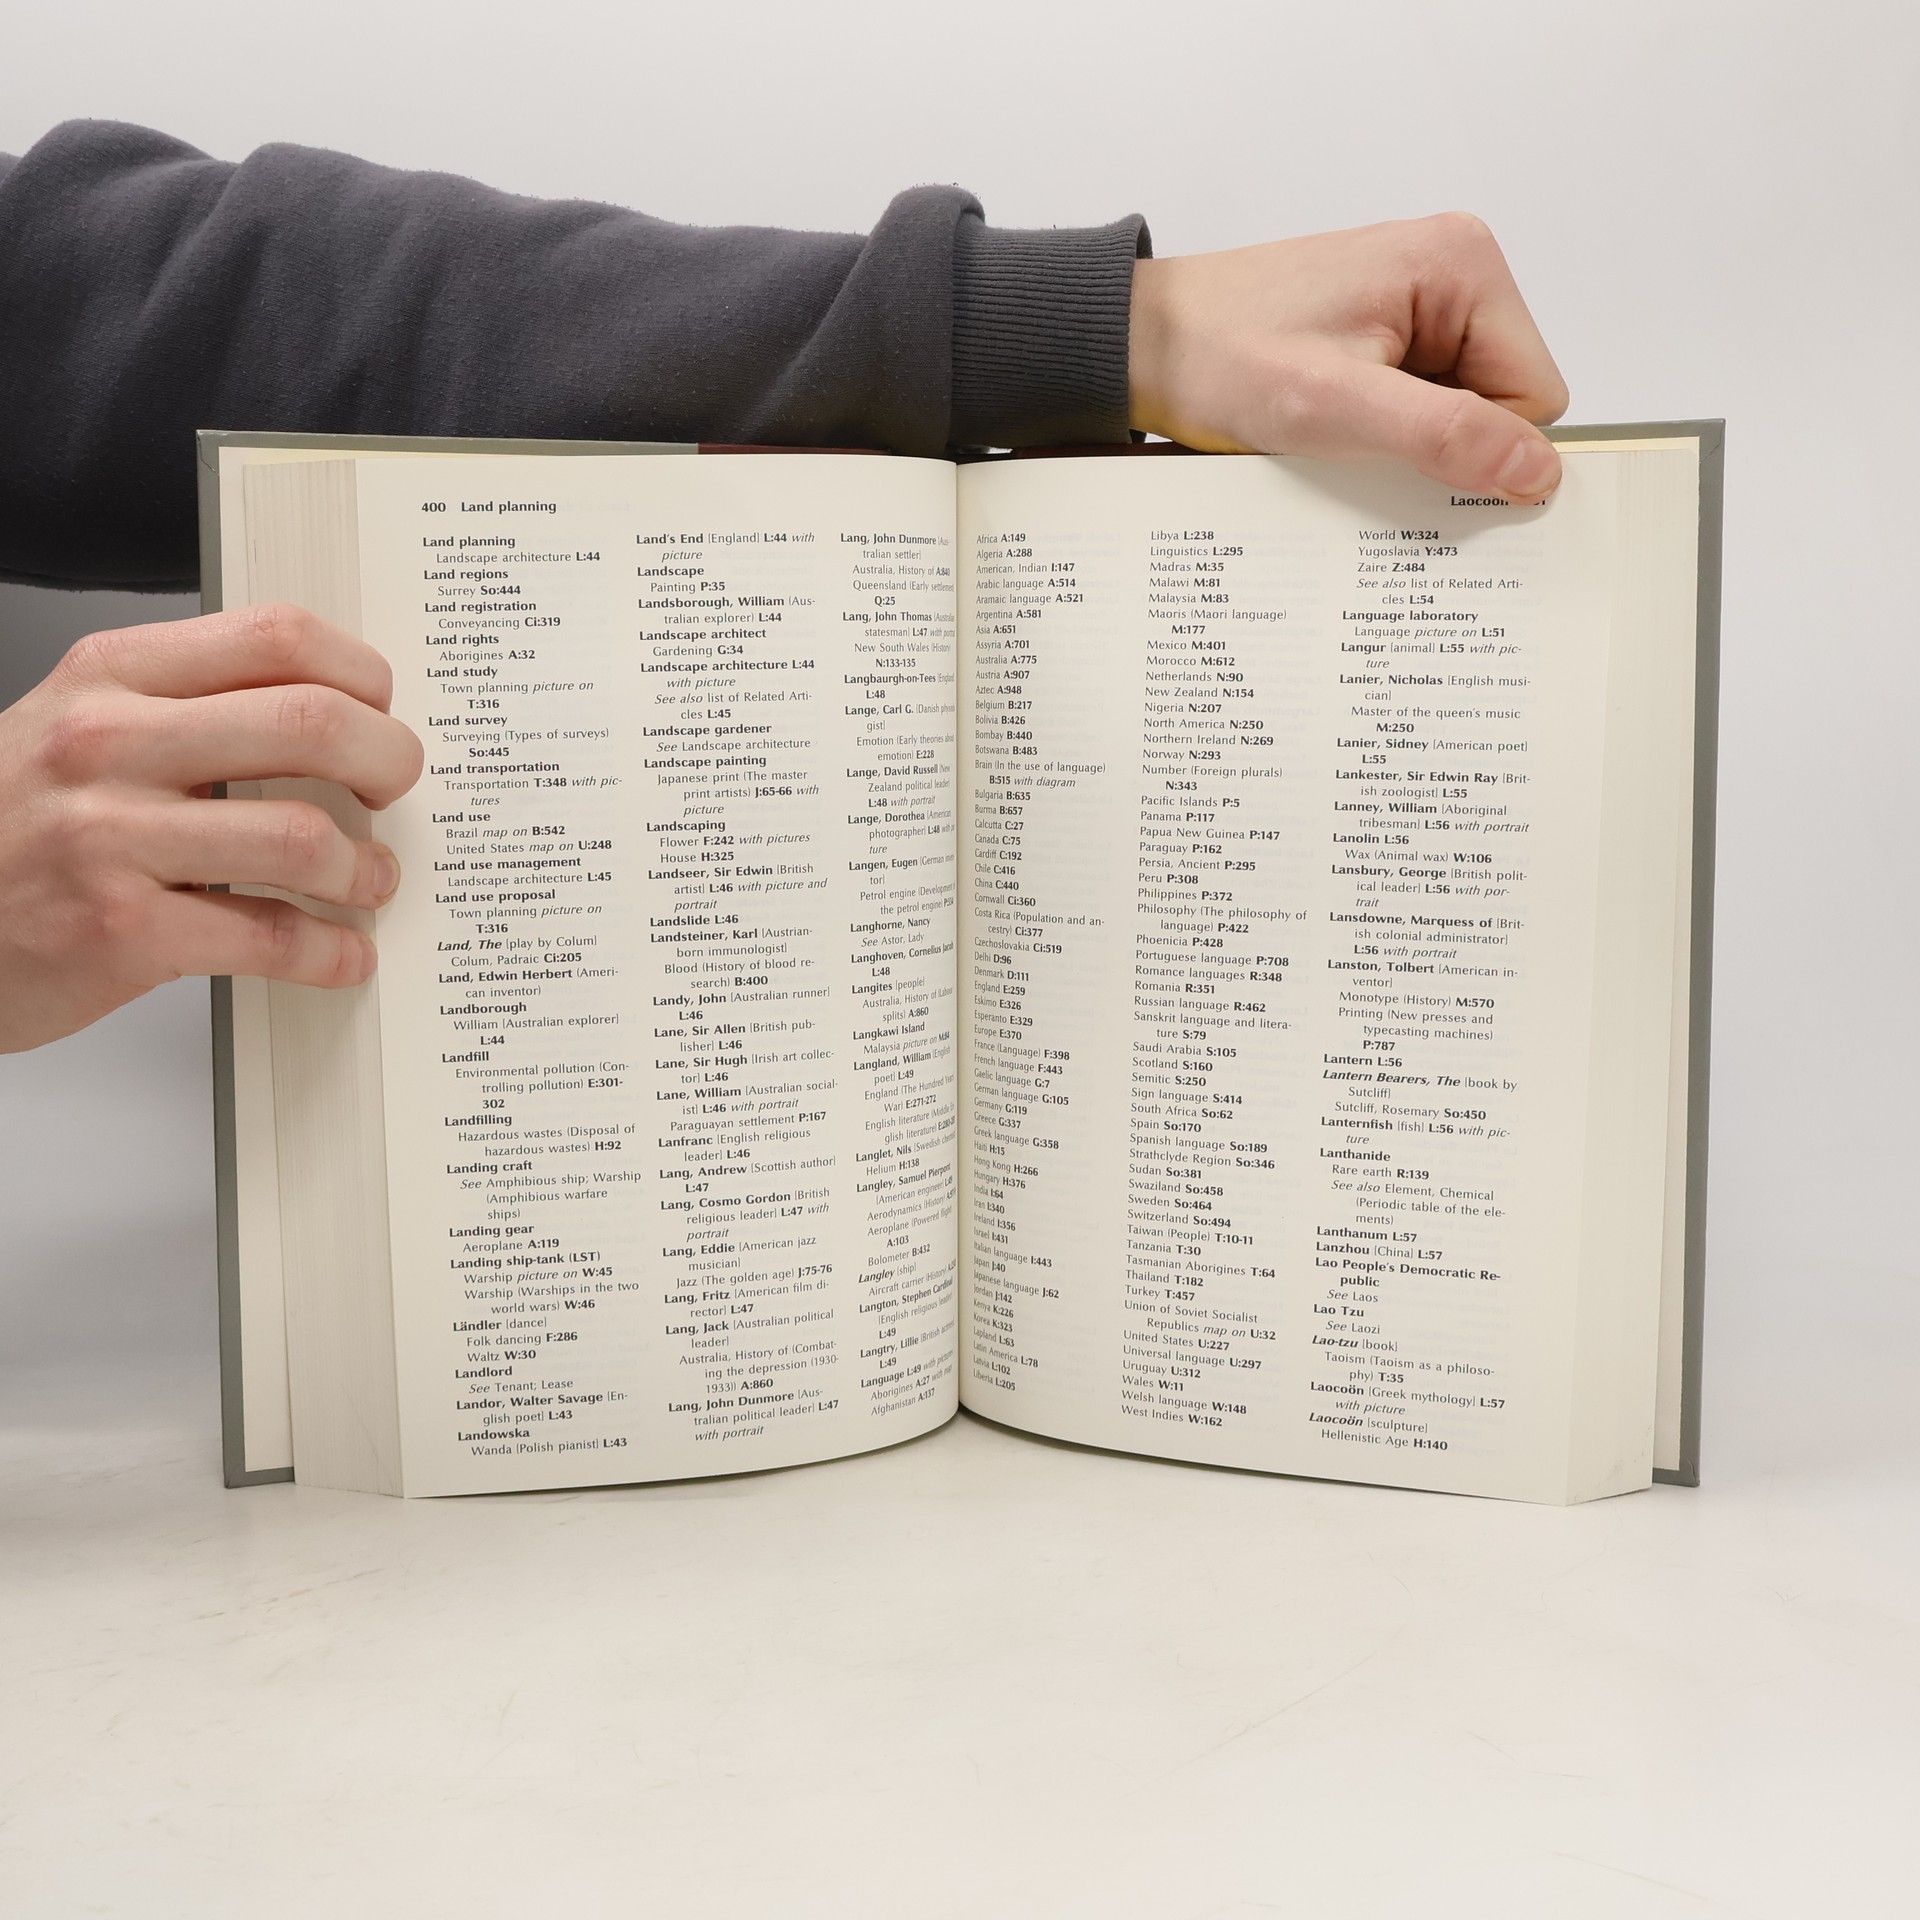 400 Land planning
Land planning
Landscape architecture L:44
Land regions
Surrey So:444
Land registration
Conveyancing Ci:319
Land rights
Aborigines A:32
Land study
Town planning picture on
T:316
Land survey
Surveying (Types of surveys)
So:445
Land transportation
Transportation T:348 with pic-
tures
Land use
Brazil map on B:542
United States map on U:248
Land use management
Landscape architecture L:45
Land use proposal
Town planning picture on
T:316
Land, The [play by Colum]
Colum, Padraic Ci:205
Land, Edwin Herbert [Ameri-
can inventor]
Landborough
William [Australian explorer]
L:44
Landfill
Environmental pollution (Con-
trolling pollution) E:301-
302
Landfilling
Hazardous wastes (Disposal of
hazardous wastes) H:92
Landing craft
See Amphibious ship; Warship
(Amphibious warfare
ships)
Landing gear
Aeroplane A:119
Landing ship-tank (LST)
Warship picture on W:45
Warship (Warships in the two
world wars) W:46
Ländler [dance]
Folk dancing F:286
Waltz W:30
Landlord
See Tenant; Lease
Landor, Walter Savage [En-
glish poet] L:43
Landowska
Wanda [Polish pianist] L:43
Land's End [England] L:44 with
picture
Landscape
Painting P:35
Landsborough, William [Aus-
tralian explorer] L:44
Landscape architect
Gardening G:34
Landscape architecture L:44
with picture
See also list of Related Arti-
cles L:45
Landscape gardener
See Landscape architecture
Landscape painting
Japanese print (The master
print artists) J:65-66 with
picture
Landscaping
Flower F:242 with pictures
House H:325
Landseer, Sir Edwin [British
artist] L:46 with picture and
portrait
Landslide L:46
Landsteiner, Karl [Austrian-
born immunologist]
Blood (History of blood re-
search) B:400
Landy, John [Australian runner]
L:46
Lane, Sir Allen [British pub-
lisher] L:46
Lane, Sir Hugh [Irish art collec-
tor] L:46
Lane, William [Australian social-
ist] L:46 with portrait
Paraguayan settlement P:167
Lanfranc [English religious
leader] L:46
Lang, Andrew [Scottish author]
L:47
Lang, Cosmo Gordon [British
religious leader] L:47 with
portrait
Lang, Eddie [American jazz
musician]
Jazz (The golden age) J:75-76
Lang, Fritz [American film di-
rector] L:47
Lang, Jack [Australian political
leader]
Australia, History of (Combat-
ing the depression (1930-
1933)) A:860
Lang, John Dunmore [Aus-
tralian political leader] L:47
with portrait
Lang, John Dunmore [Aus-
tralian settler]
Australia, History of A:840
Queensland (Early settlement)
Q:25
Lang, John Thomas [Australian
statesman] L:47 with portrait
New South Wales (History)
N:133-135
Langbaurgh-on-Tees [England]
L:48
Lange, Carl G. [Danish physiolo-
gist]
Emotion (Early theories about
emotion) E:228
Lange, David Russell [New
Zealand political leader]
L:48 with portrait
Lange, Dorothea [American
photographer] L:48 with pic-
ture
Langen, Eugen [German inven-
tor]
Petrol engine (Development of
the petrol engine)
Langhorne, Nancy
See Astor, Lady
Langhoven, Cornelius Jacob
L:48
Langites [people]
Australia, History of (Labour
splits) A:860
Langkawi Island
Malaysia picture on M:84
Langland, William [English
poet] L:49
England (The Hundred Years
War) E:271-272
English literature (Middle En-
glish literature)
Langlet, Nils [Swedish chemist]
Helium H:138
Langley, Samuel Pierpont
[American engineer] L:49
Aerodynamics (History)
Aeroplane (Powered flight)
A:103
Bolometer B:432
Langley [ship]
Aircraft carrier (History)
Langton, Stephen Cardinal
[English religious leader]
L:49
Langtry, Lillie [British actress]
L:49
Language L:49 with pictures
Aborigines A:27 with map
Afghanistan A:137
Laocoön
Africa A:149
Algeria A:288
American, Indian I:147
Arabic language A:514
Aramaic language A:521
Argentina A:581
Asia A:651
Assyria A:701
Australia A:775
Austria A:907
Aztec A:948
Belgium B:217
Bolivia B:426
Bombay B:440
Botswana B:483
Brain (In the use of language)
B:515 with diagram
Bulgaria B:635
Burma B:657
Calcutta C:27
Canada C:75
Cardiff C:192
Chile C:416
China C:440
Cornwall Ci:360
Costa Rica (Population and an-
cestry) Ci:377
Czechoslovakia Ci:519
Delhi D:96
Denmark D:111
England E:259
Eskimo E:326
Esperanto E:329
Europe E:370
France (Language) F:398
French language F:443
Gaelic language G:7
German language G:105
Germany G:119
Greece G:337
Greek language G:358
Haiti H:15
Hong Kong H:266
Hungary H:376
India I:64
Iran I:340
Ireland I:356
Israel I:431
Italian language I:443
Japan J:40
Japanese language J:62
Jordan J:142
Kenya K:226
Korea K:323
Lapland L:63
Latin America L:78
Latvia L:102
Liberia L:205
Libya L:238
Linguistics L:295
Madras M:35
Malawi M:81
Malaysia M:83
Maoris (Maori language)
M:177
Mexico M:401
Morocco M:612
Netherlands N:90
New Zealand N:154
Nigeria N:207
North America N:250
Northern Ireland N:269
Norway N:293
Number (Foreign plurals)
N:343
Pacific Islands P:5
Panama P:117
Papua New Guinea P:147
Paraguay P:162
Persia, Ancient P:295
Peru P:308
Philippines P:372
Philosophy (The philosophy of
language) P:422
Phoenicia P:428
Portuguese language P:708
Romance languages R:348
Romania R:351
Russian language R:462
Sanskrit language and litera-
ture S:79
Saudi Arabia S:105
Scotland S:160
Semitic S:250
Sign language S:414
South Africa So:62
Spain So:170
Spanish language So:189
Strathclyde Region So:346
Sudan So:381
Swaziland So:458
Sweden So:464
Switzerland So:494
Taiwan (People) T:10-11
Tanzania T:30
Tasmanian Aborigines T:64
Thailand T:182
Turkey T:457
Union of Soviet Socialist
Republics map on U:32
United States U:227
Universal language U:297
Uruguay U:312
Wales W:11
Welsh language W:148
West Indies W:162
World W:324
Yugoslavia Y:473
Zaire Z:484
See also list of Related Arti-
cles L:54
Language laboratory
Language picture on L:51
Langur [animal] L:55 with pic-
ture
Lanier, Nicholas [English musi-
cian]
Master of the queen's music
M:250
Lanier, Sidney [American poet]
L:55
Lankester, Sir Edwin Ray [Brit-
ish zoologist] L:55
Lanney, William [Aboriginal
tribesman] L:56 with portrait
Lanolin L:56
Wax (Animal wax) W:106
Lansbury, George [British polit-
ical leader] L:56 with por-
trait
Lansdowne, Marquess of [Brit-
ish colonial administrator]
L:56 with portrait
Lanston, Tolbert [American in-
ventor]
Monotype (History) M:570
Printing (New presses and
typecasting machines)
P:787
Lantern L:56
Lantern Bearers, The [book by
Sutcliff]
Sutcliff, Rosemary So:450
Lanternfish [fish] L:56 with pic-
ture
Lanthanide
Rare earth R:139
See also Element, Chemical
(Periodic table of the ele-
ments)
Lanthanum L:57
Lanzhou [China] L:57
Lao People's Democratic Re-
public
See Laos
Lao Tzu
See Laozi
Lao-tzu [book]
Taoism (Taoism as a philoso-
phy) T:35
Laocoön [Greek mythology] L:57
with picture
Laocoön [sculpture]
Hellenistic Age H:140